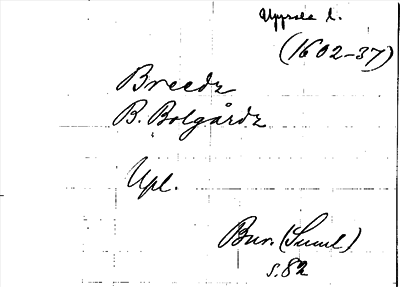 Uppsala l.
(1602-37)
Breedz
B. Bolgårdz
Upl.
Bur. (Suml)
s. 82